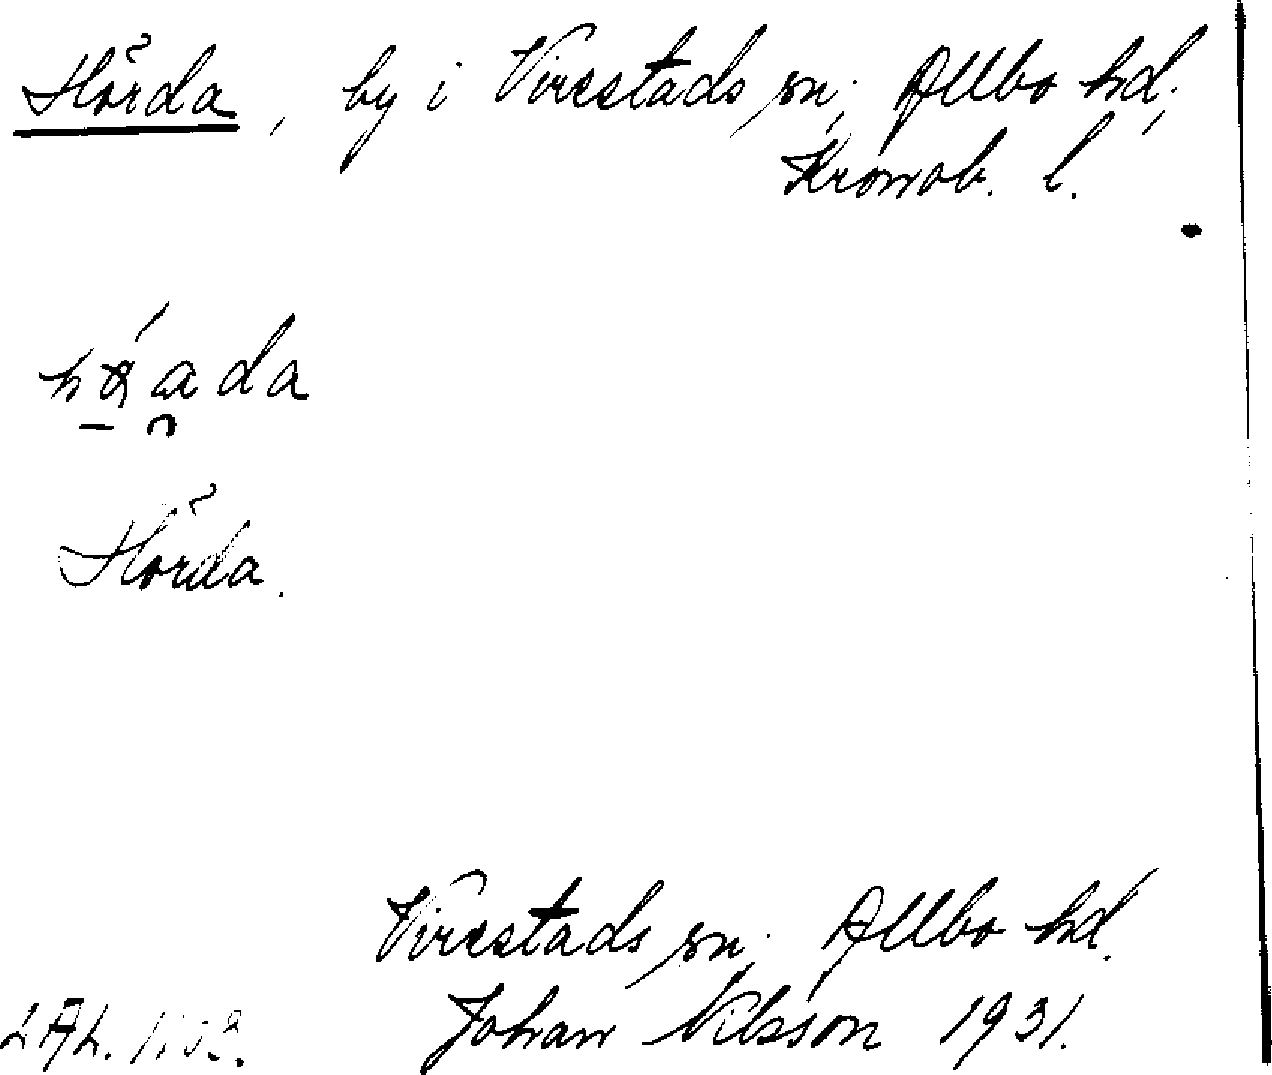 Hörda, by i Virestads sn; Allbo hd;
Kronob. l.
Hörda.
Virestads sn; Allbo hd.
Johan Nilsson 1931.
LAL.